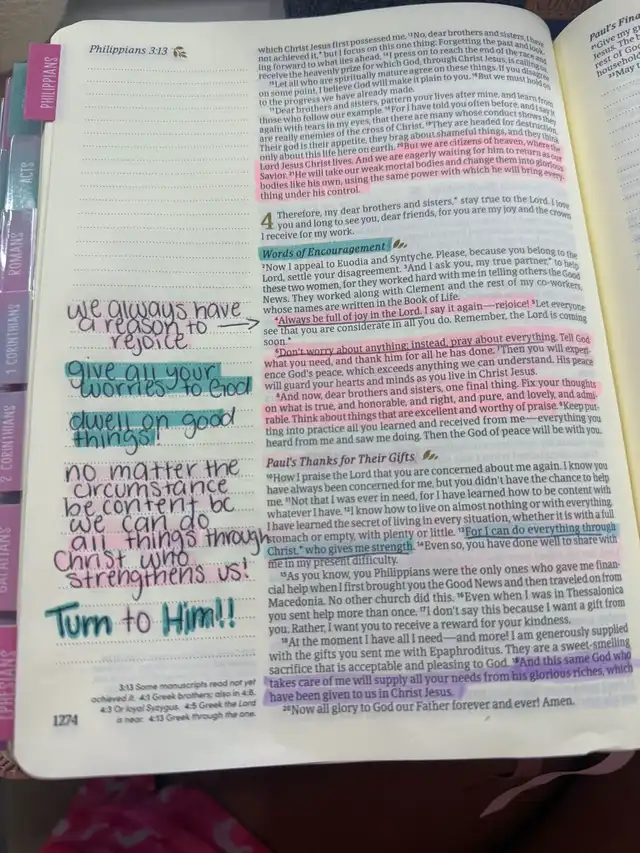 Philippians 3:13
PHILIPPIANS
ACTS
ROMANS
1 CORINTHIANS
2 CORINTHIANS
GALATIANS
EPHESIANS
we always have
a reason to →
rejoice
give all your
worries to God
dwell on good
things!
no matter the
circumstance
be content bc
we can do
all things through
Christ who
strengthens us!
Turn to Him!!
3:13 Some manuscripts read not yet
achieved it. 4:1 Greek brothers; also in 4:8.
4:3 Or loyal Syzygus. 4:5 Greek the Lord
is near. 4:13 Greek through the one.
1274
which Christ Jesus first possessed me. 13No, dear brothers and sisters, I have
not achieved it,* but I focus on this one thing: Forgetting the past and look-
ing forward to what lies ahead, 14I press on to reach the end of the race and
receive the heavenly prize for which God, through Christ Jesus, is calling us.
15Let all who are spiritually mature agree on these things. If you disagree
on some point, I believe God will make it plain to you. 16But we must hold on
to the progress we have already made.
17Dear brothers and sisters, pattern your lives after mine, and learn from
those who follow our example. 18For I have told you often before, and I say it
again with tears in my eyes, that there are many whose conduct shows they
are really enemies of the cross of Christ. 19They are headed for destruction.
Their god is their appetite, they brag about shameful things, and they think
only about this life here on earth. 20But we are citizens of heaven, where the
Lord Jesus Christ lives. And we are eagerly waiting for him to return as our
Savior. 21He will take our weak mortal bodies and change them into glorious
bodies like his own, using the same power with which he will bring every-
thing under his control.
4 Therefore, my dear brothers and sisters,* stay true to the Lord. I love
you and long to see you, dear friends, for you are my joy and the crown
I receive for my work.
Words of Encouragement
2Now I appeal to Euodia and Syntyche. Please, because you belong to the
Lord, settle your disagreement. 3And I ask you, my true partner,* to help
these two women, for they worked hard with me in telling others the Good
News. They worked along with Clement and the rest of my co-workers,
whose names are written in the Book of Life.
4Always be full of joy in the Lord. I say it again—rejoice! 5Let everyone
see that you are considerate in all you do. Remember, the Lord is coming
soon.*
6Don't worry about anything; instead, pray about everything. Tell God
what you need, and thank him for all he has done. 7Then you will experi-
ence God's peace, which exceeds anything we can understand. His peace
will guard your hearts and minds as you live in Christ Jesus.
8And now, dear brothers and sisters, one final thing. Fix your thoughts
on what is true, and honorable, and right, and pure, and lovely, and admi-
rable. Think about things that are excellent and worthy of praise. 9Keep put-
ting into practice all you learned and received from me—everything you
heard from me and saw me doing. Then the God of peace will be with you.
Paul's Thanks for Their Gifts
10How I praise the Lord that you are concerned about me again. I know you
have always been concerned for me, but you didn't have the chance to help
me. 11Not that I was ever in need, for I have learned how to be content with
whatever I have. 12I know how to live on almost nothing or with everything.
I have learned the secret of living in every situation, whether it is with a full
stomach or empty, with plenty or little. 13For I can do everything through
Christ,* who gives me strength. 14Even so, you have done well to share with
me in my present difficulty.
15As you know, you Philippians were the only ones who gave me finan-
cial help when I first brought you the Good News and then traveled on from
Macedonia. No other church did this. 16Even when I was in Thessalonica
you sent help more than once. 17I don't say this because I want a gift from
you. Rather, I want you to receive a reward for your kindness.
18At the moment I have all I need—and more! I am generously supplied
with the gifts you sent me with Epaphroditus. They are a sweet-smelling
sacrifice that is acceptable and pleasing to God. 19And this same God who
takes care of me will supply all your needs from his glorious riches, which
have been given to us in Christ Jesus.
20Now all glory to God our Father forever and ever! Amen.
Paul's Fina
21Give my g
Jesus. The b
rest of God'
household
23May t